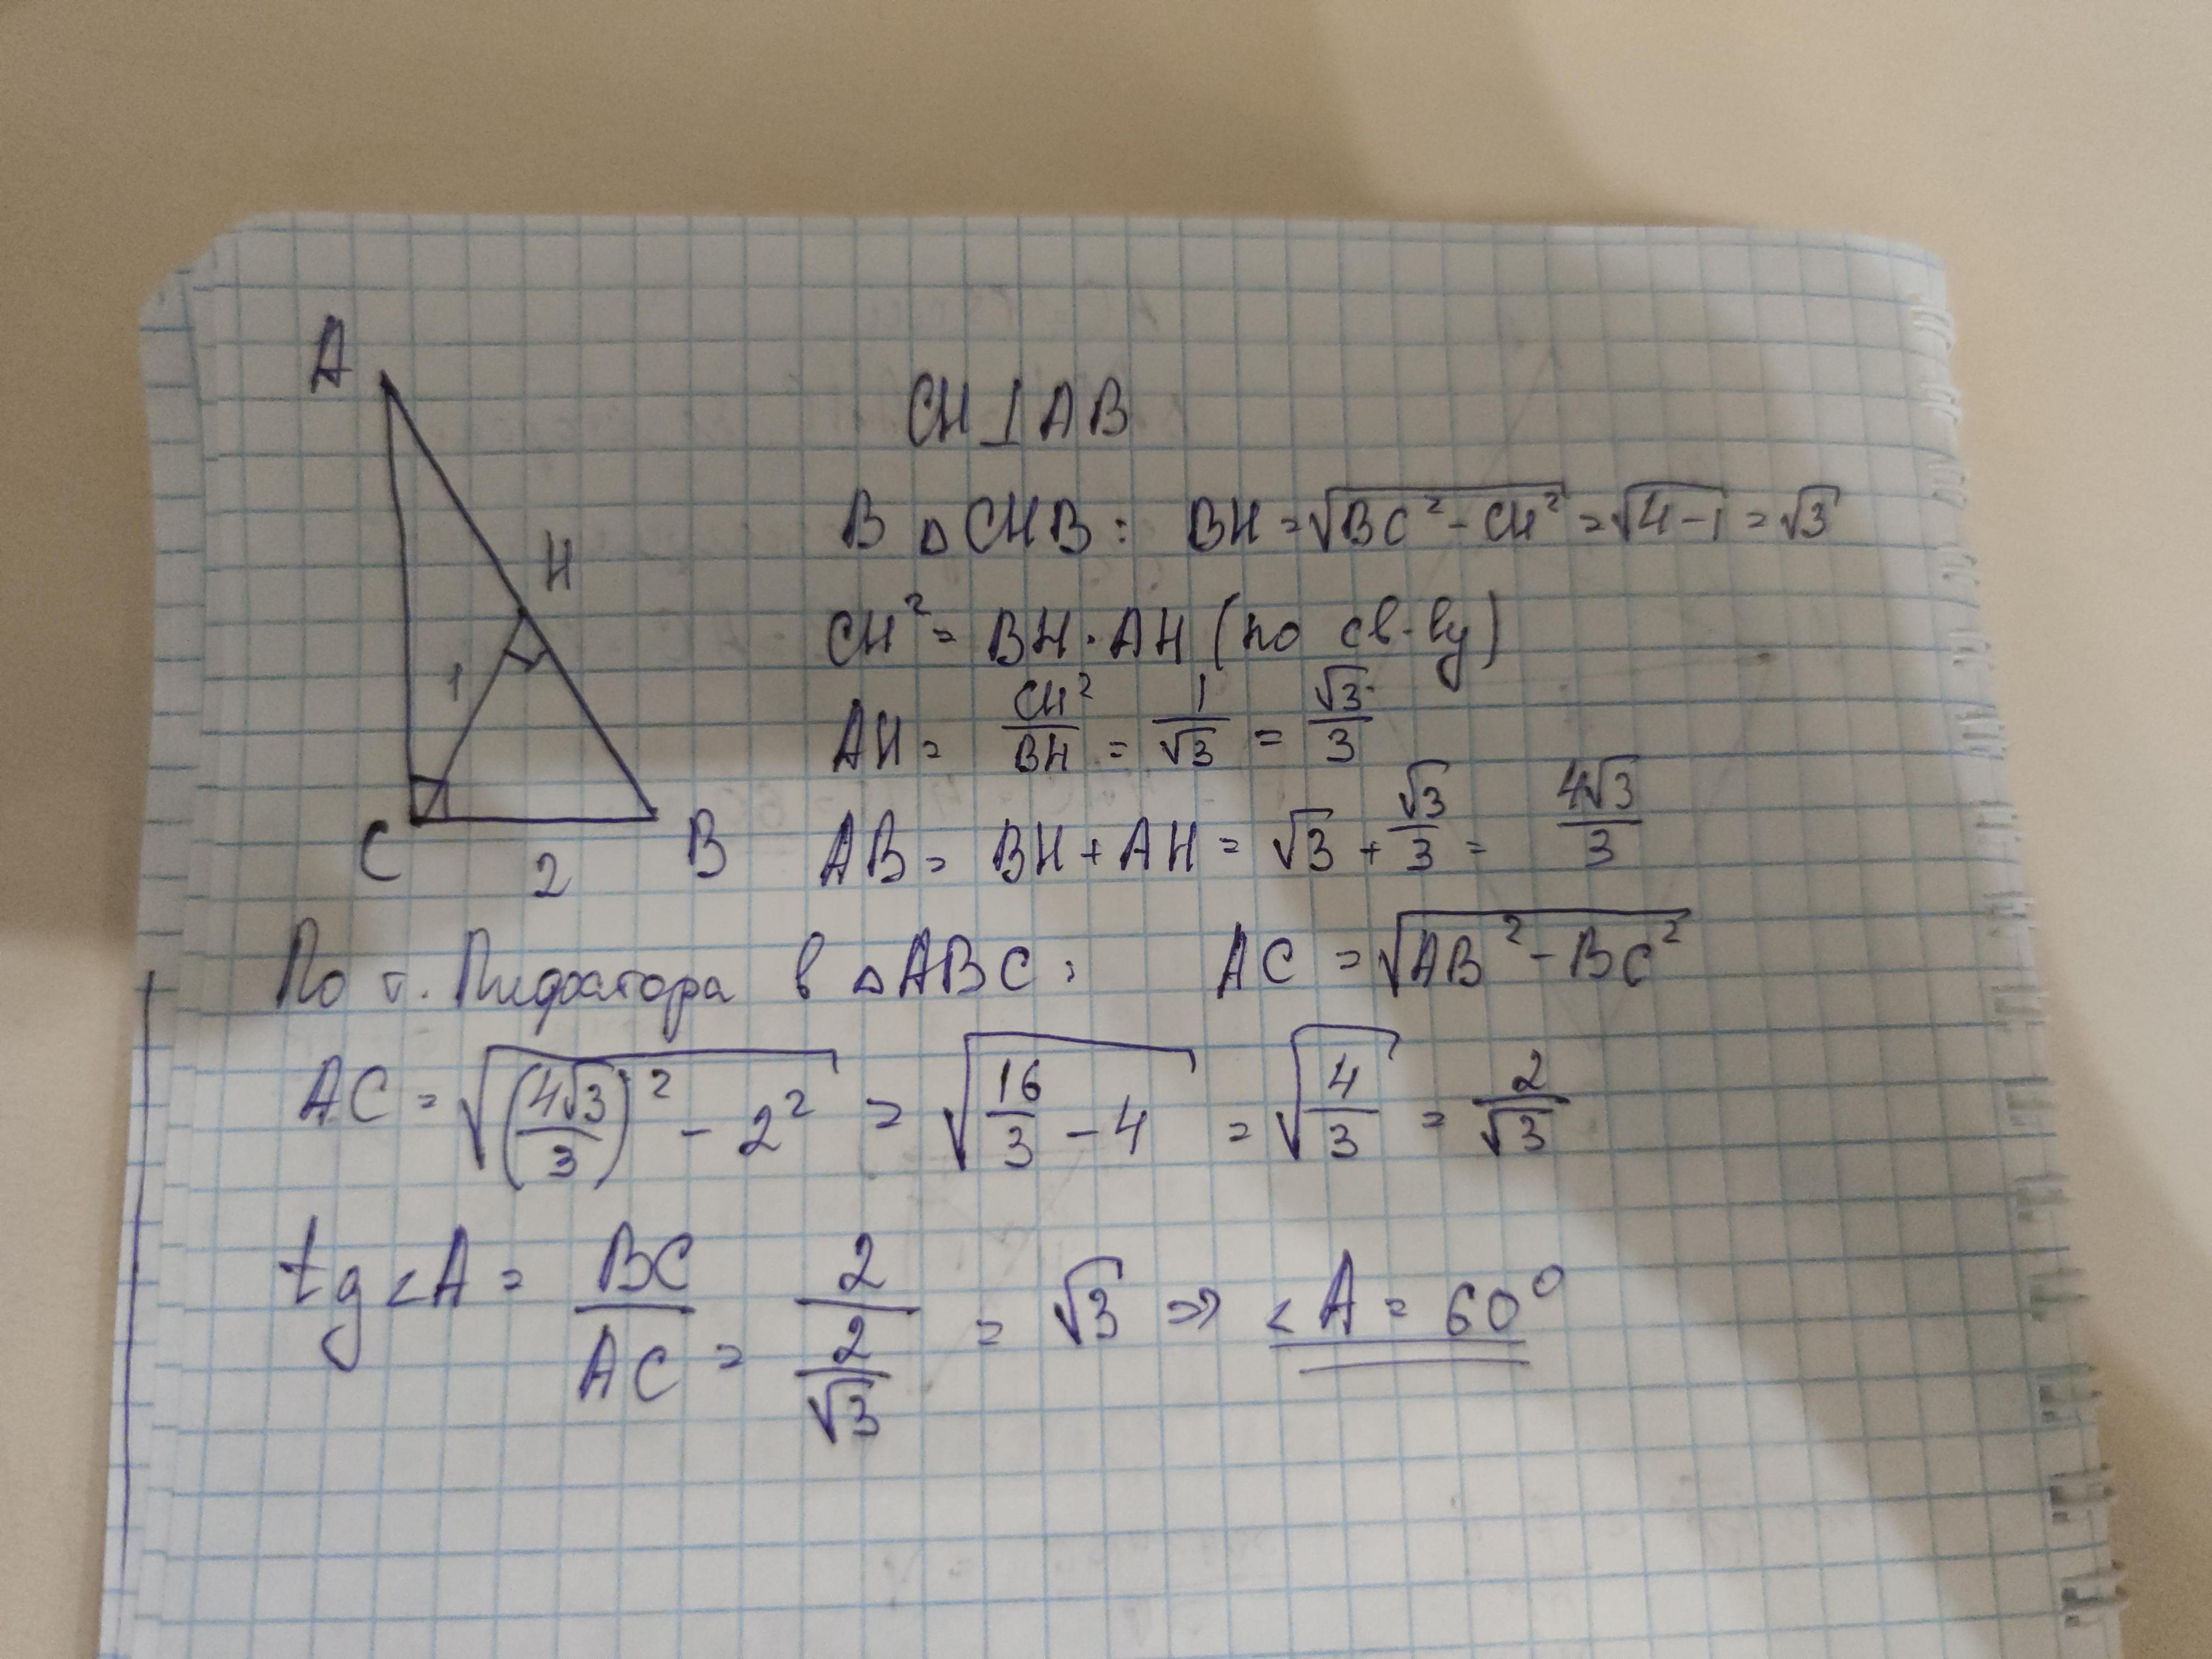 A
H
1
C
2
B
CH ⊥ AB
В △CHB: BH = √(BC² - CH²) = √(4-1) = √3
CH² = BH · AH (по св-ву)
AH = CH²/BH = 1/√3 = √3/3
AB = BH + AH = √3 + √3/3 = 4√3/3
По т. Пифагора в △ABC: AC = √(AB² - BC²)
AC = √((4√3/3)² - 2²) = √(16/3 - 4) = √(4/3) = 2/√3
tg∠A = BC/AC = 2/(2/√3) = √3 ⇒ ∠A = 60°